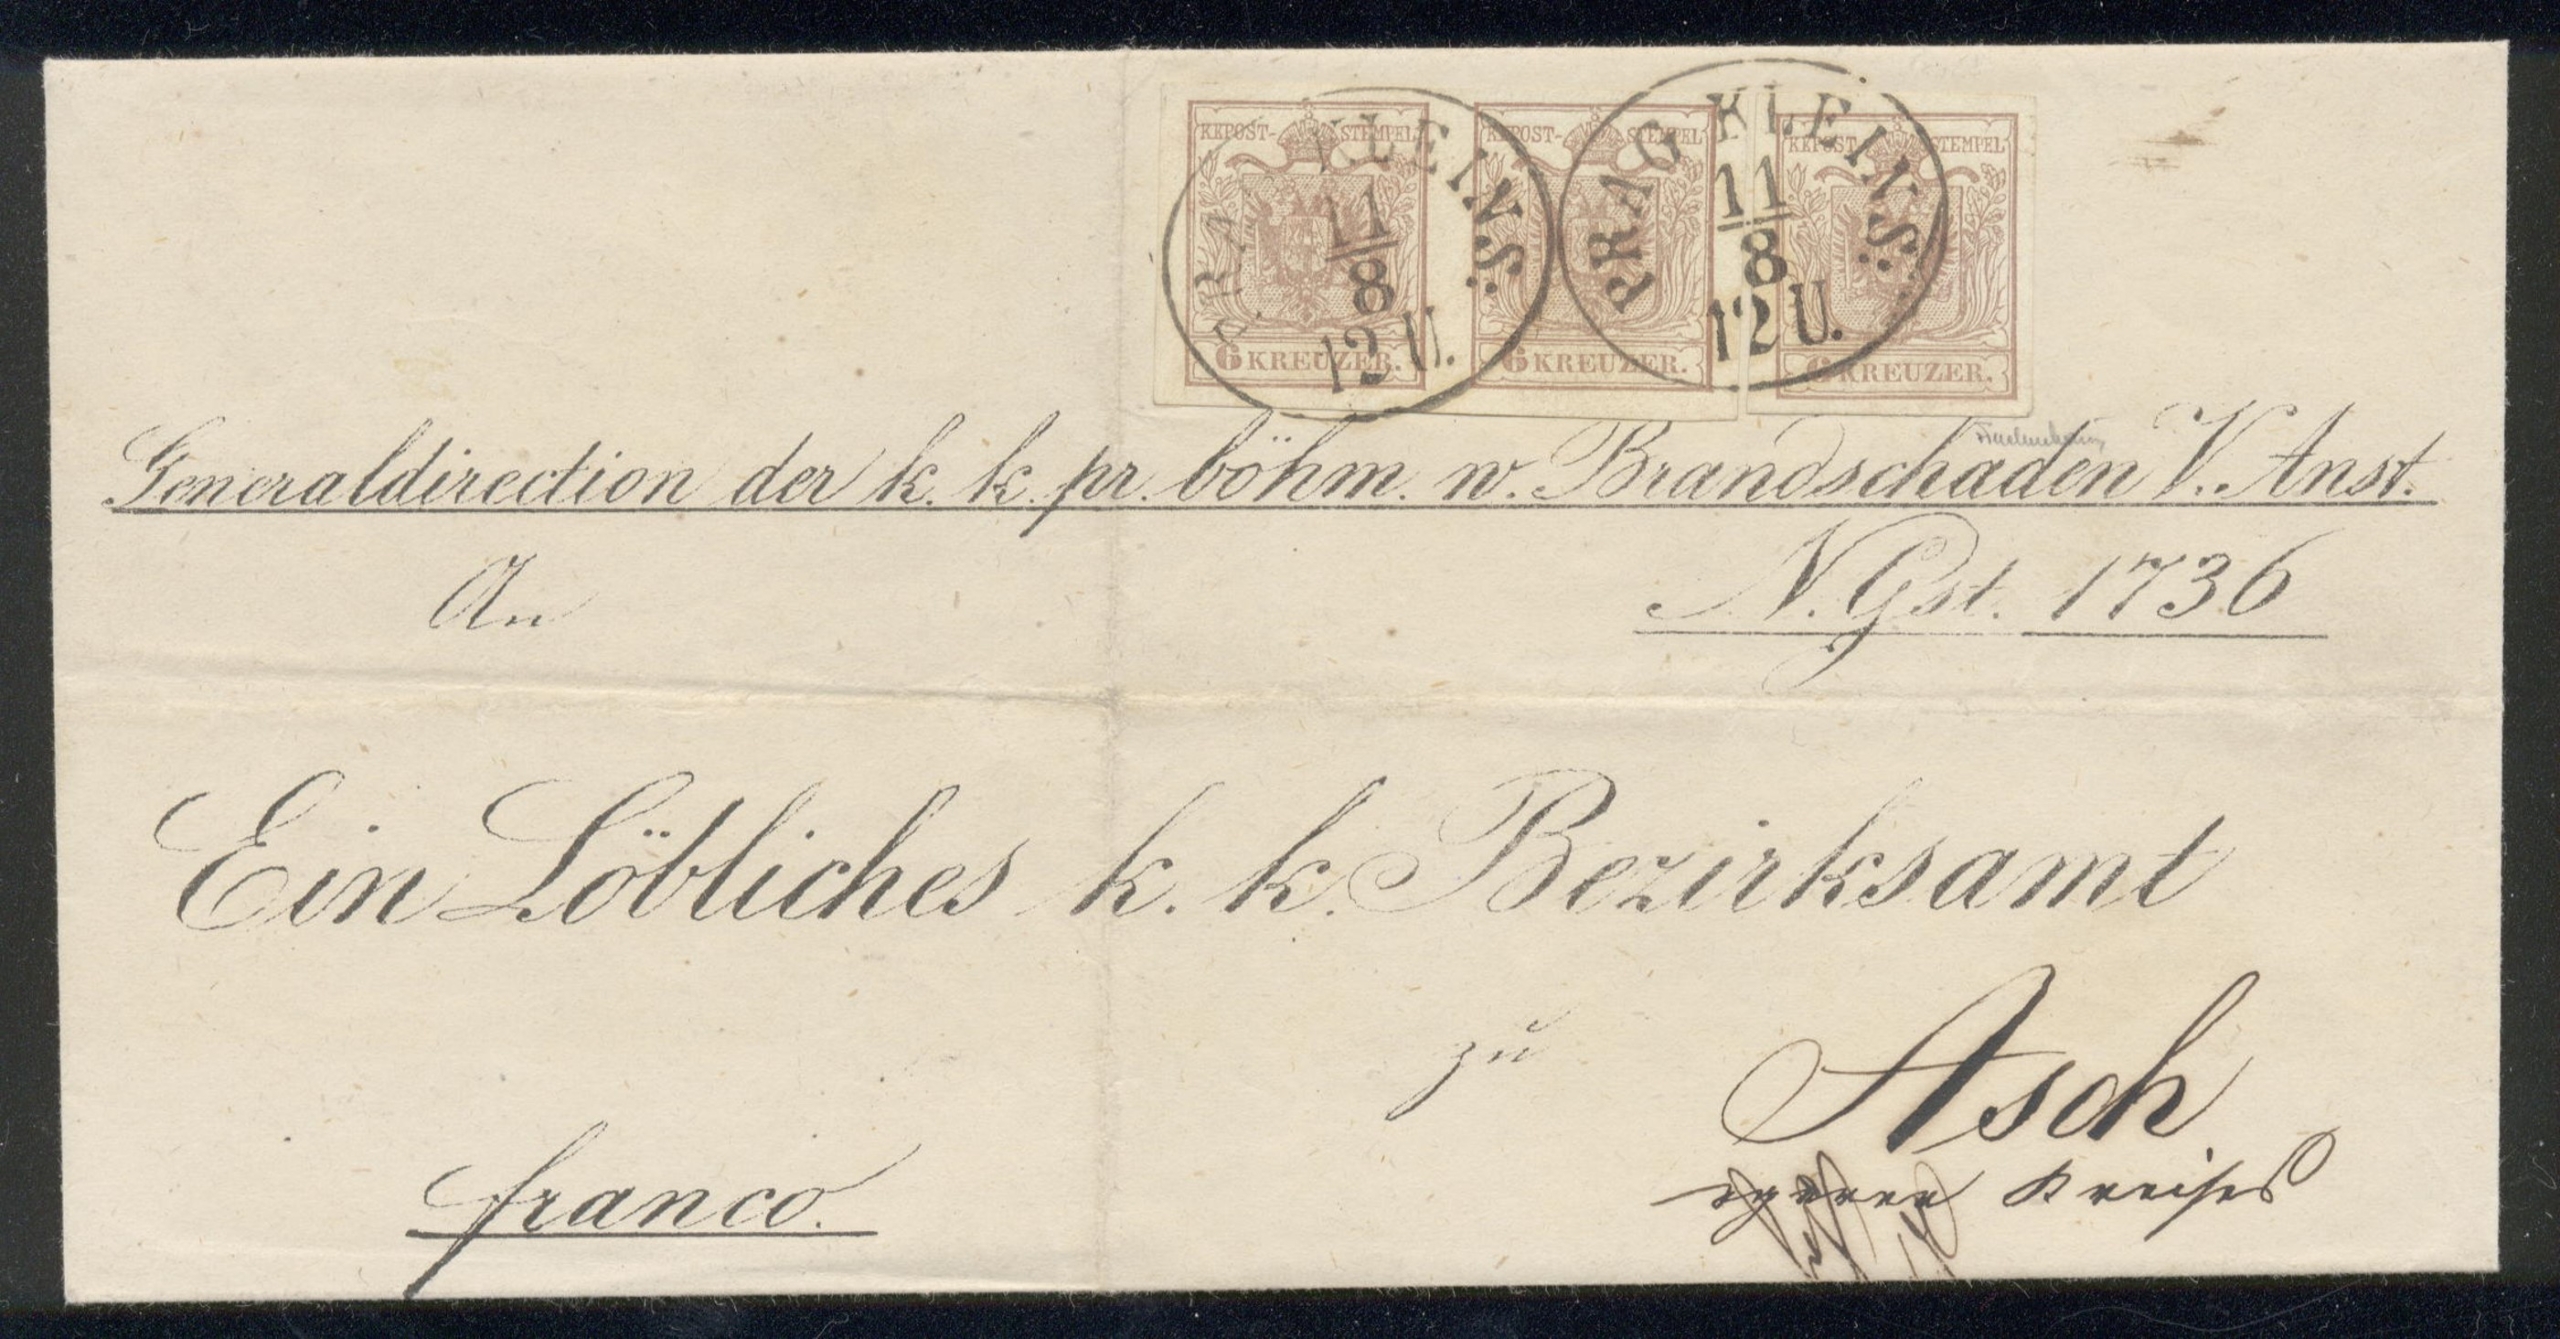 KKPOST-STEMPEL KKPOST-STEMPEL KKPOST-STEMPEL
PRAG KLEINS:
11/8
12 U.
PRAG KLEINS:
11/8
12 U.
6 KREUZER. 6 KREUZER. 6 KREUZER.
Generaldirection der k. k. pr. böhm. w. Brandschaden V. Anst.
An
N. Gst. 1736
Ein Löbliches k. k. Bezirksamt
zu
Asch
Kreises
franco.